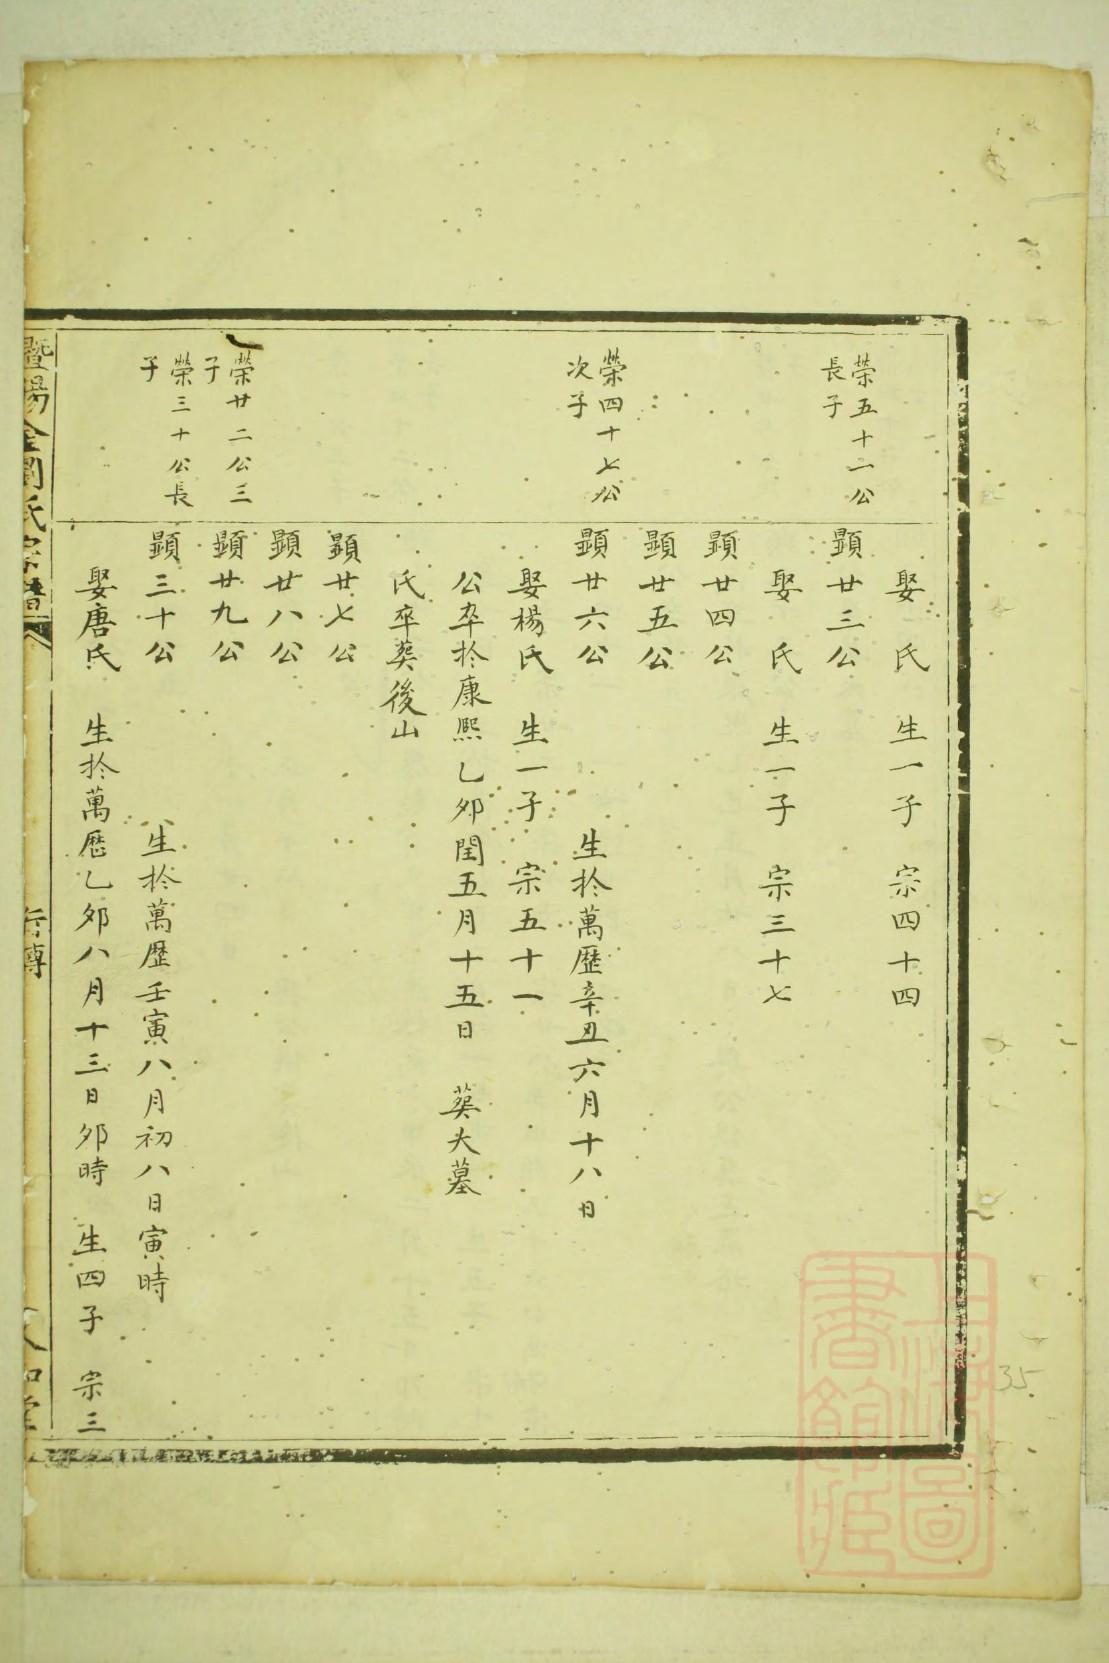 娶　氏　生一子　宗四十四
榮五十一公
長子
顯廿三公
娶　氏　生一子　宗三十七
顯廿四公
顯廿五公
榮四十七公
次子
顯廿六公　生扵萬歷辛丑六月十八日
娶楊氏　生一子　宗五十一
公卒扵康熙乙夘閏五月十五日　葵大墓
氏卒葵後山
顯廿七公
顯廿八公
榮廿二公三
子
顯廿九公
榮三十公長
子
顯三十公　生扵萬歷壬寅八月初八日寅時
娶唐氏　生扵萬歷乙夘八月十三日夘時　生四子　宗三
暨陽金澗氏宗譜
行傳
上海圖
書館藏
35